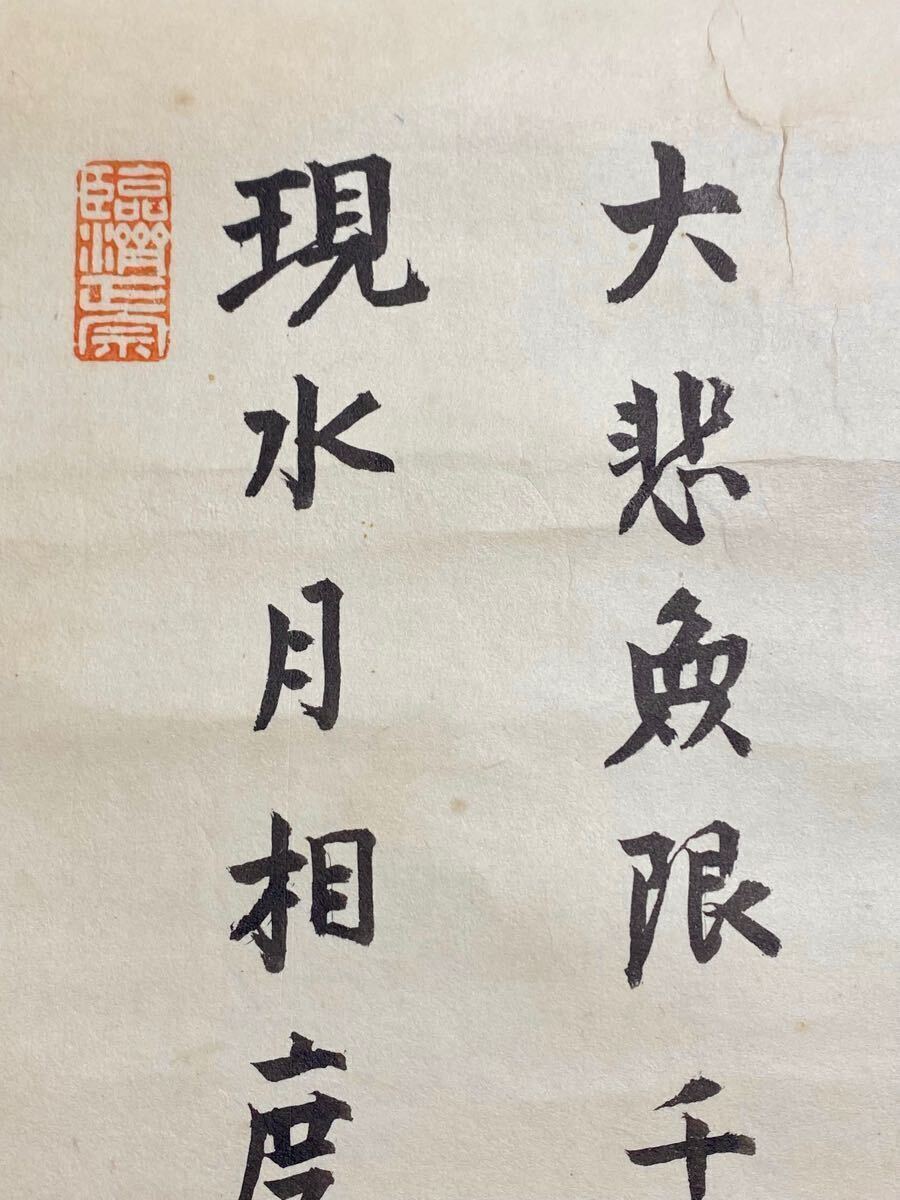 大悲無限千
現水月相度
臨濟正宗